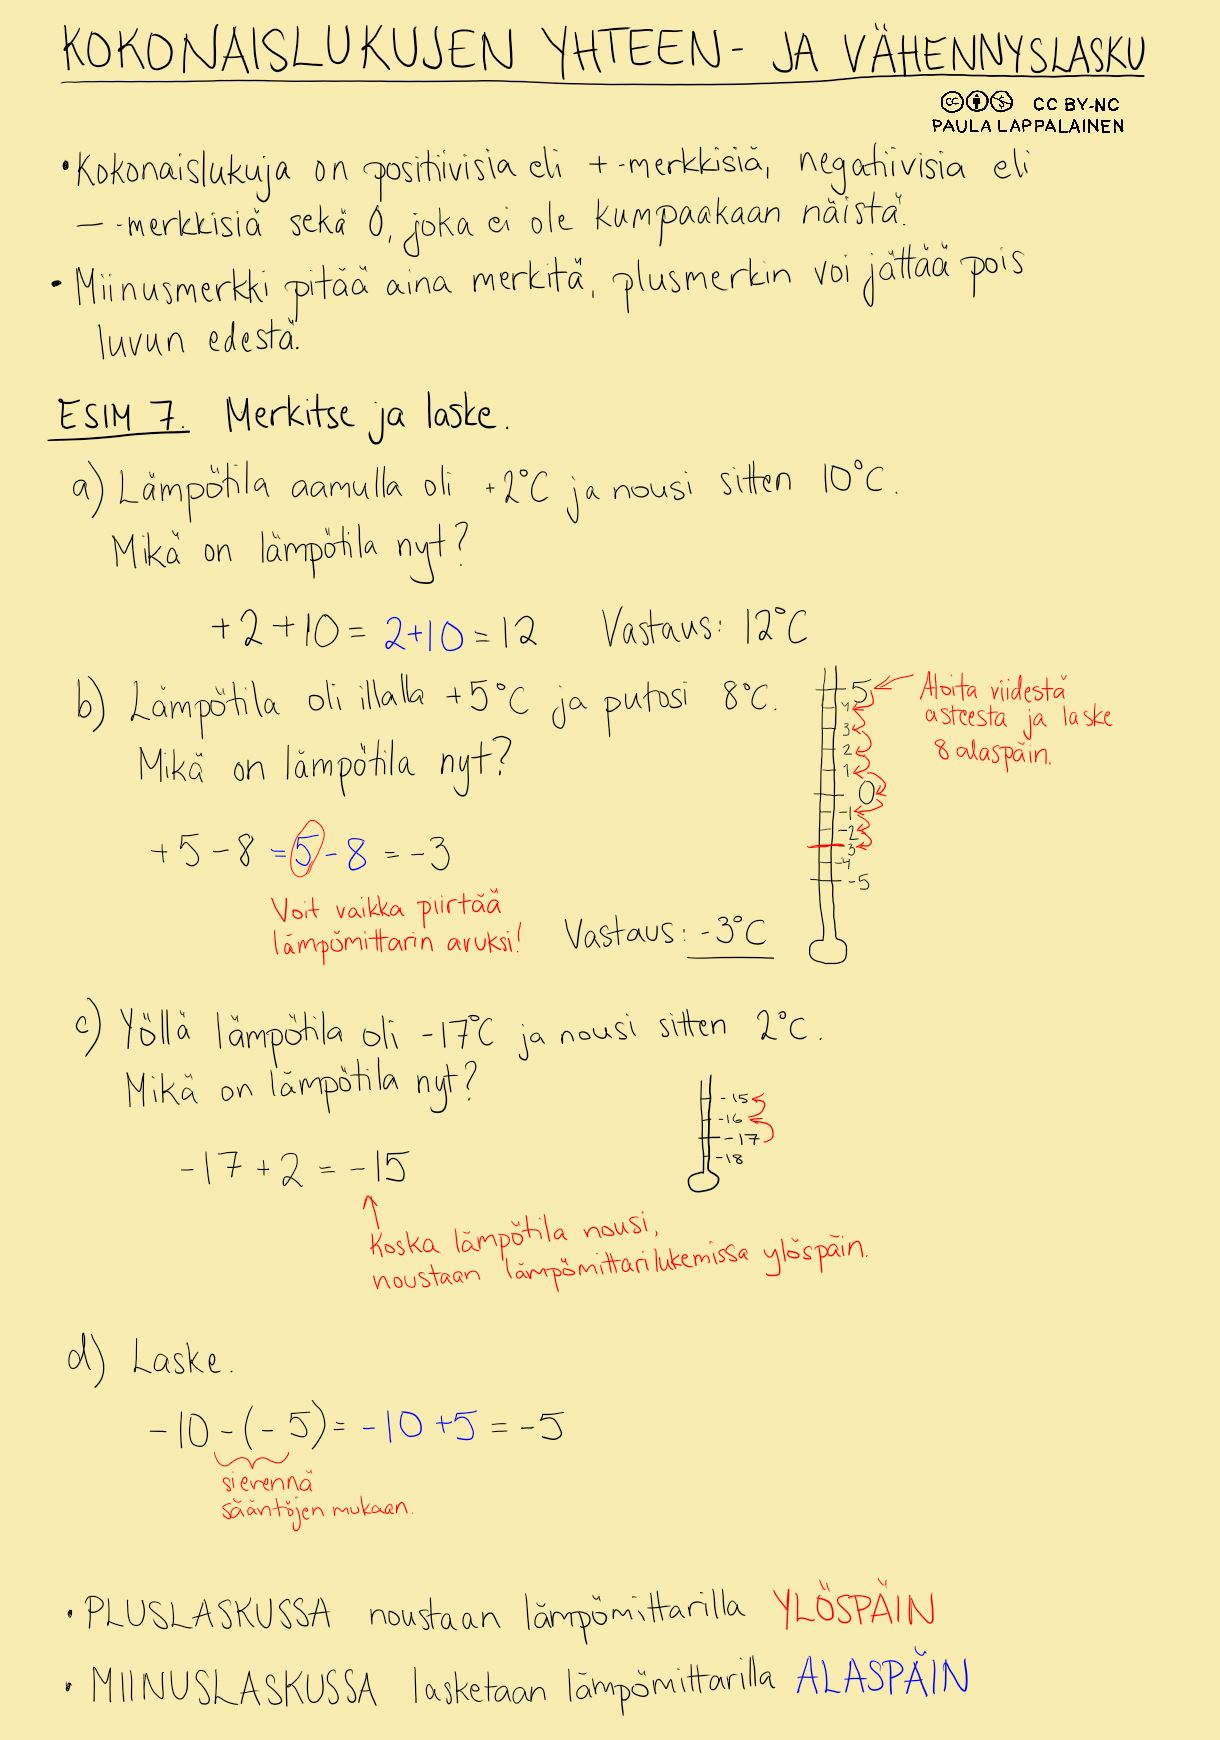 KOKONAISLUKUJEN YHTEEN- JA VÄHENNYSLASKU
CC BY-NC
PAULA LAPPALAINEN
• Kokonaislukuja on positiivisia eli + -merkkisiä, negatiivisia eli
— -merkkisiä sekä 0, joka ei ole kumpaakaan näistä.
• Miinusmerkki pitää aina merkitä, plusmerkin voi jättää pois
luvun edestä.
ESIM 7. Merkitse ja laske.
a) Lämpötila aamulla oli +2°C ja nousi sitten 10°C.
Mikä on lämpötila nyt?
+2+10 = 2+10 = 12 Vastaus: 12°C
b) Lämpötila oli illalla +5°C ja putosi 8°C.
Mikä on lämpötila nyt?
5
4
3
2
1
0
-1
-2
-3
-4
-5
Aloita viidestä
asteesta ja laske
8 alaspäin.
+5-8 = 5-8 = -3
Voit vaikka piirtää
lämpömittarin avuksi!
Vastaus: -3°C
c) Yöllä lämpötila oli -17°C ja nousi sitten 2°C.
Mikä on lämpötila nyt?
-15
-16
-17
-18
-17+2 = -15
Koska lämpötila nousi,
noustaan lämpömittarilukemissa ylöspäin.
d) Laske.
-10-(-5) = -10+5 = -5
sievennä
sääntöjen mukaan.
• PLUSLASKUSSA noustaan lämpömittarilla YLÖSPÄIN
• MIINUSLASKUSSA lasketaan lämpömittarilla ALASPÄIN